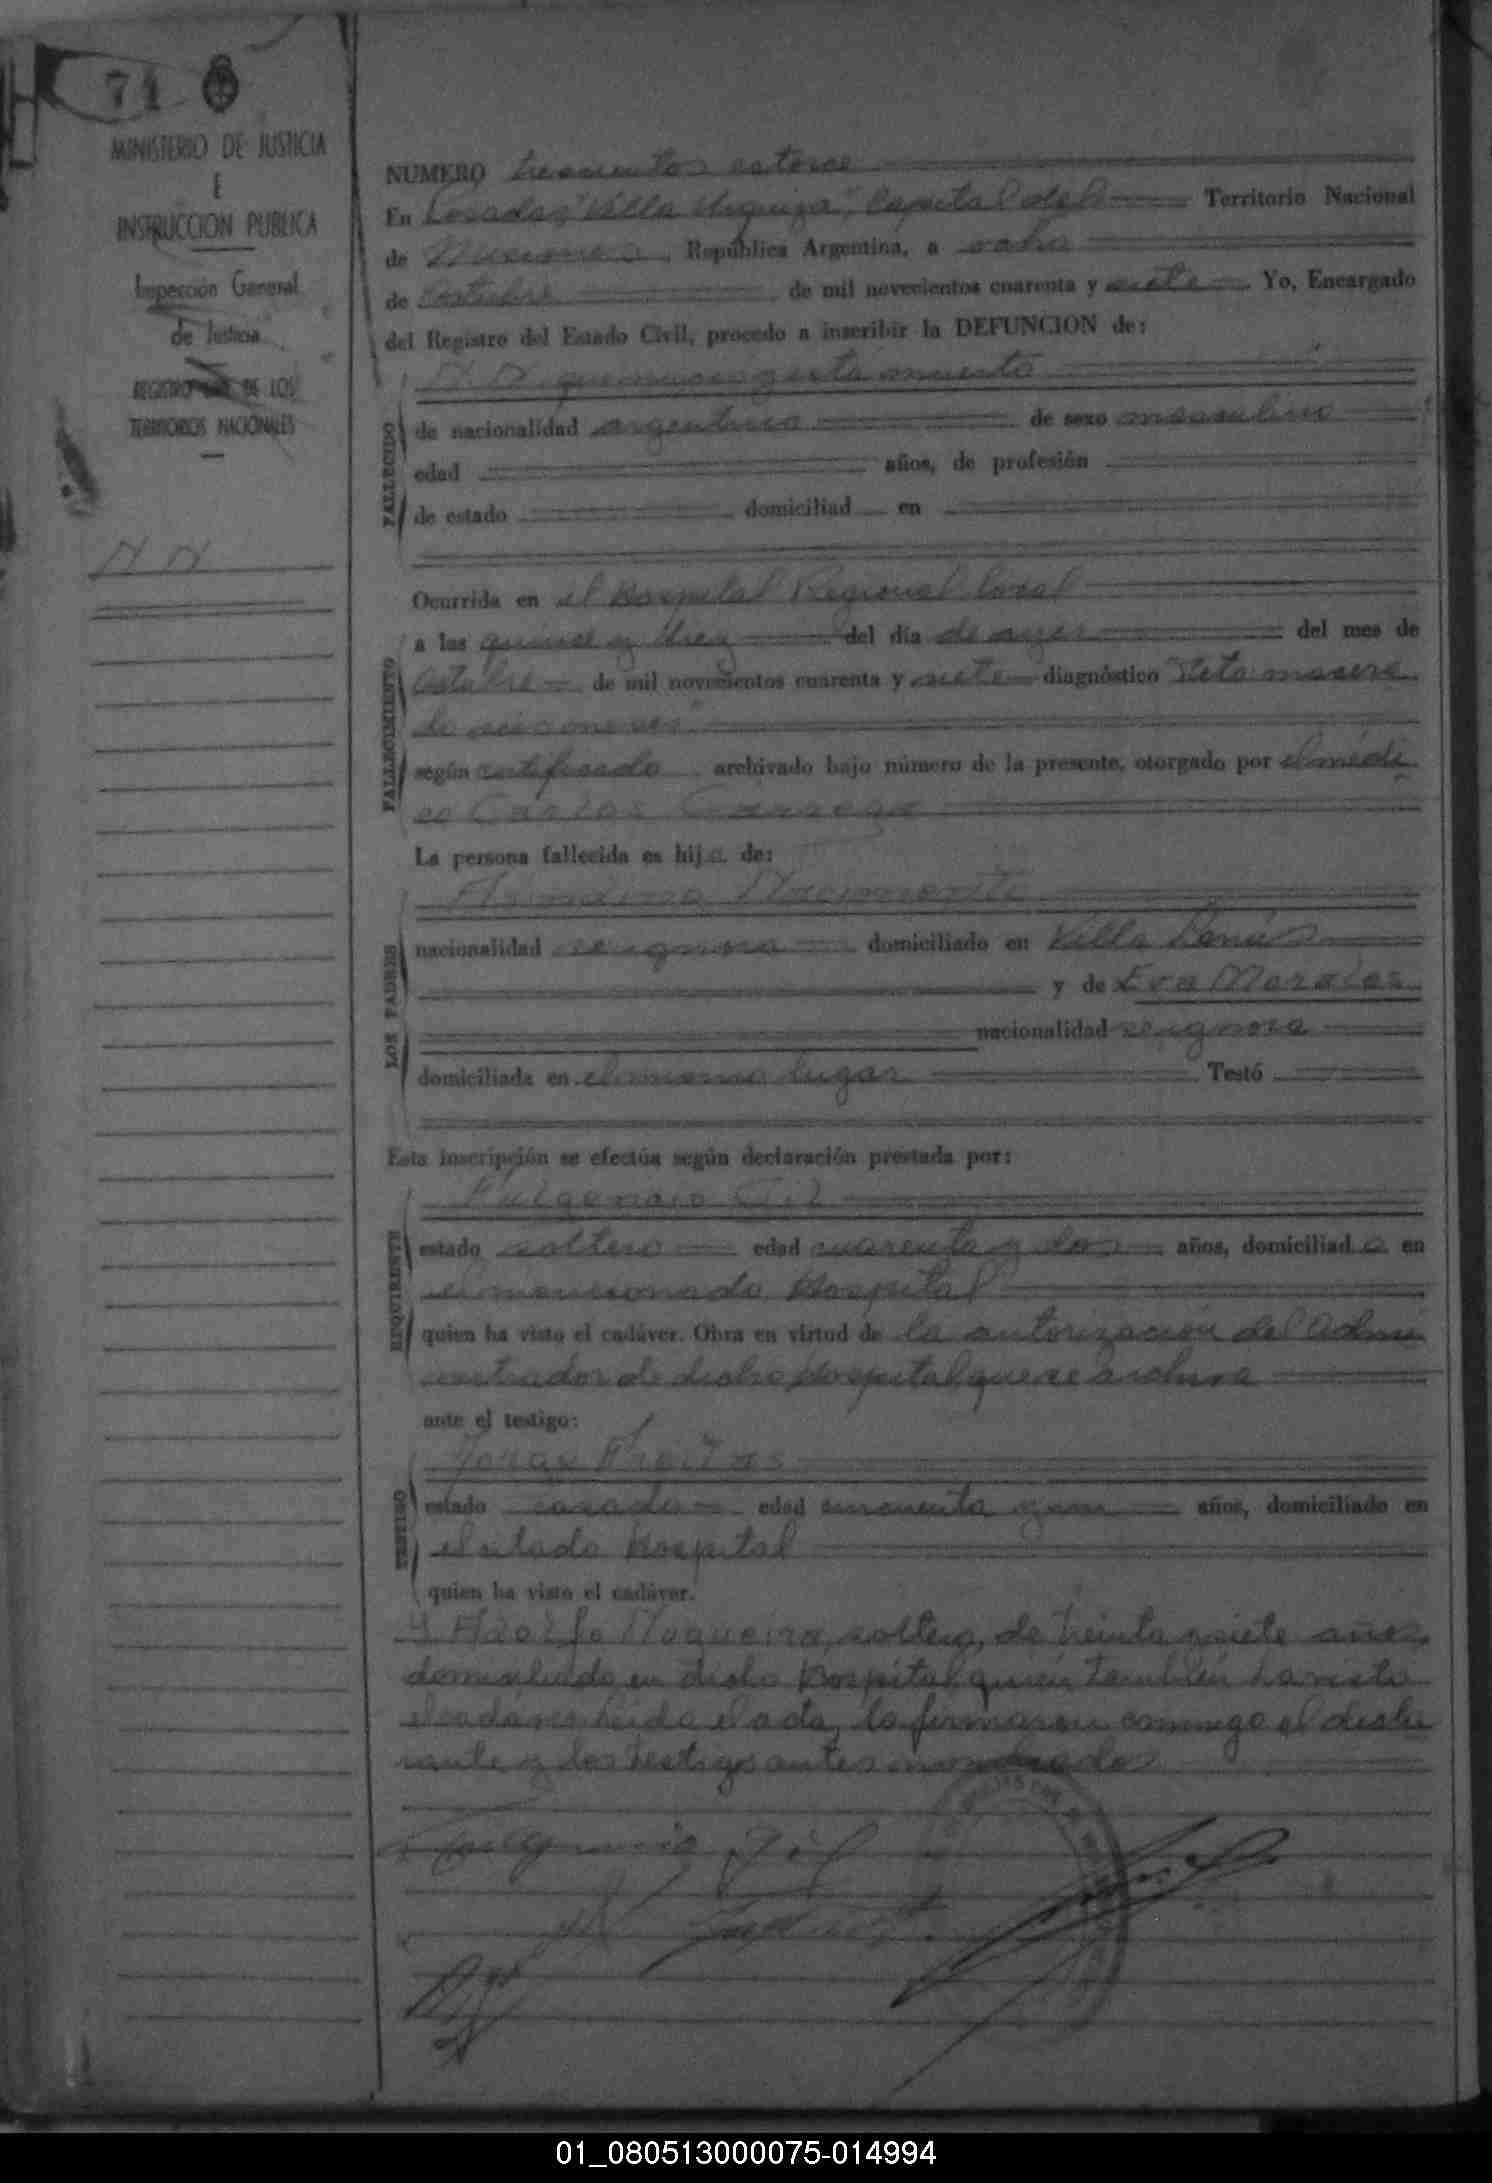 71
MINISTERIO DE JUSTICIA
E
INSTRUCCION PUBLICA
Inspección General
de Justicia
REGISTRO DE LOS
TERRITORIOS NACIONALES
N N
NUMERO trescientos catorce
En Posadas, "Villa Urquiza", Capital del Territorio Nacional
de Misiones, República Argentina, a ocho
de Octubre de mil novecientos cuarenta y siete Yo, Encargado
del Registro del Estado Civil, procedo a inscribir la DEFUNCION de:
N. N. que nació muerto
FALLECIDO
de nacionalidad argentina de sexo masculino
edad años, de profesión
de estado domiciliad en
Ocurrida en el Hospital Regional local
FALLECIMIENTO
a las quince y diez del día de ayer del mes de
Octubre de mil novecientos cuarenta y siete diagnóstico "Feto macera
do
según certificado archivado bajo número de la presente, otorgado por el médi
co Carlos
La persona fallecida es hijo de:
LOS PADRES
nacionalidad se ignora domiciliado en Villa Lanús
y de Eva Morales
nacionalidad se ignora
domiciliada en el mismo lugar Testó
Esta inscripción se efectúa según declaración prestada por:
REQUIRENTE
Fulgencio Gil
estado soltero edad cuarenta y dos años, domiciliado en
el mencionado Hospital
quien ha visto el cadáver. Obra en virtud de la autorización del Admi
nistrador de dicho Hospital que se archiva
ante el testigo:
TESTIGO
Jorge Freitas
estado casado edad cincuenta años, domiciliado en
el citado Hospital
quien ha visto el cadáver.
Y Adolfo Nogueira, soltero, de treinta y siete años,
domiciliado en dicho Hospital, quien también ha visto
el cadáver. Leída el acta, la firmaron conmigo el decla
rante y los testigos antes nombrados
Fulgencio Gil
01_080513000075-014994